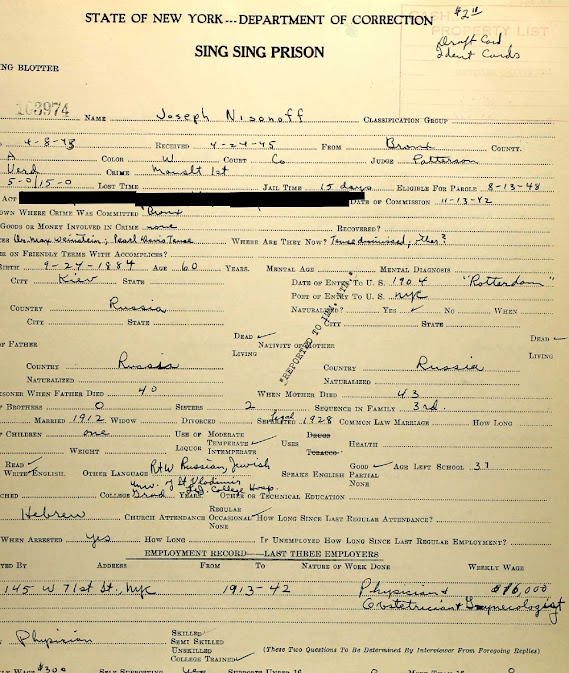 STATE OF NEW YORK---DEPARTMENT OF CORRECTION
$2
CASH
PROPERTY LIST
Draft Card
Ident Cards
SING SING PRISON
NG BLOTTER
108974 NAME Joseph Nisonoff CLASSIFICATION GROUP
4-8-43 RECEIVED 4-24-45 FROM Bronx COUNTY.
A COLOR W COURT Co JUDGE Patterson
Verd CRIME Manslt 1st
5-0/15-0 LOST TIME JAIL TIME 15 days ELIGIBLE FOR PAROLE 8-13-48
ACT DATE OF COMMISSION 11-13-42
OWN WHERE CRIME WAS COMMITTED Bronx
GOODS OR MONEY INVOLVED IN CRIME none RECOVERED?
ES Dr. Max Weinstein; Pearl WHERE ARE THEY NOW? dismissed,
RE ON FRIENDLY TERMS WITH ACCOMPLICES?
BIRTH 9-27-1884 AGE 60 YEARS. MENTAL AGE MENTAL DIAGNOSIS
CITY Kiev STATE DATE OF ENTRY TO U. S. 1904 "Rotterdam"
PORT OF ENTRY TO U. S. NYC
COUNTRY Russia NATURALIZED? YES NO WHEN
CITY STATE CITY STATE
"REPORTED TO
DEAD DEAD
OF FATHER NATIVITY OF MOTHER
LIVING LIVING
COUNTRY Russia COUNTRY Russia
NATURALIZED NATURALIZED
ISONER WHEN FATHER DIED 40 WHEN MOTHER DIED 43
F BROTHERS 0 SISTERS 2 SEQUENCE IN FAMILY 3rd.
MARRIED 1912 WIDOW DIVORCED legal SEPARATED 1928 COMMON LAW MARRIAGE HOW LONG
F CHILDREN one USE OF MODERATE DRUGS
TEMPERATE USES HEALTH
WEIGHT LIQUOR INTEMPERATE TOBACCO
READ R+W Russian, Jewish GOOD AGE LEFT SCHOOL 31
WRITE ENGLISH. OTHER LANGUAGE SPEAKS ENGLISH PARTIAL
NONE
Univ. of St Vladimir
College Hosp.
CHED COLLEGE Grad YEARS OTHER OR TECHNICAL EDUCATION
REGULAR
Hebrew CHURCH ATTENDANCE OCCASIONAL HOW LONG SINCE LAST REGULAR ATTENDANCE?
NONE
WHEN ARRESTED Yes HOW LONG IF UNEMPLOYED HOW LONG SINCE LAST REGULAR EMPLOYMENT?
EMPLOYMENT RECORD---LAST THREE EMPLOYERS
YED BY ADDRESS FROM TO NATURE OF WORK DONE WEEKLY WAGE
145 W 71st St., NYC 1913-42 Physician $16,000
Obstetrician + Gynecologist
Physician SKILLED
SEMI SKILLED
UNSKILLED
COLLEGE TRAINED (These Two Questions To Be Determined By Interviewer From Foregoing Replies)
LY WAGE $300 SELF SUPPORTING Yes SUPPORTS UNDER 16 0 MORE THAN 16 0